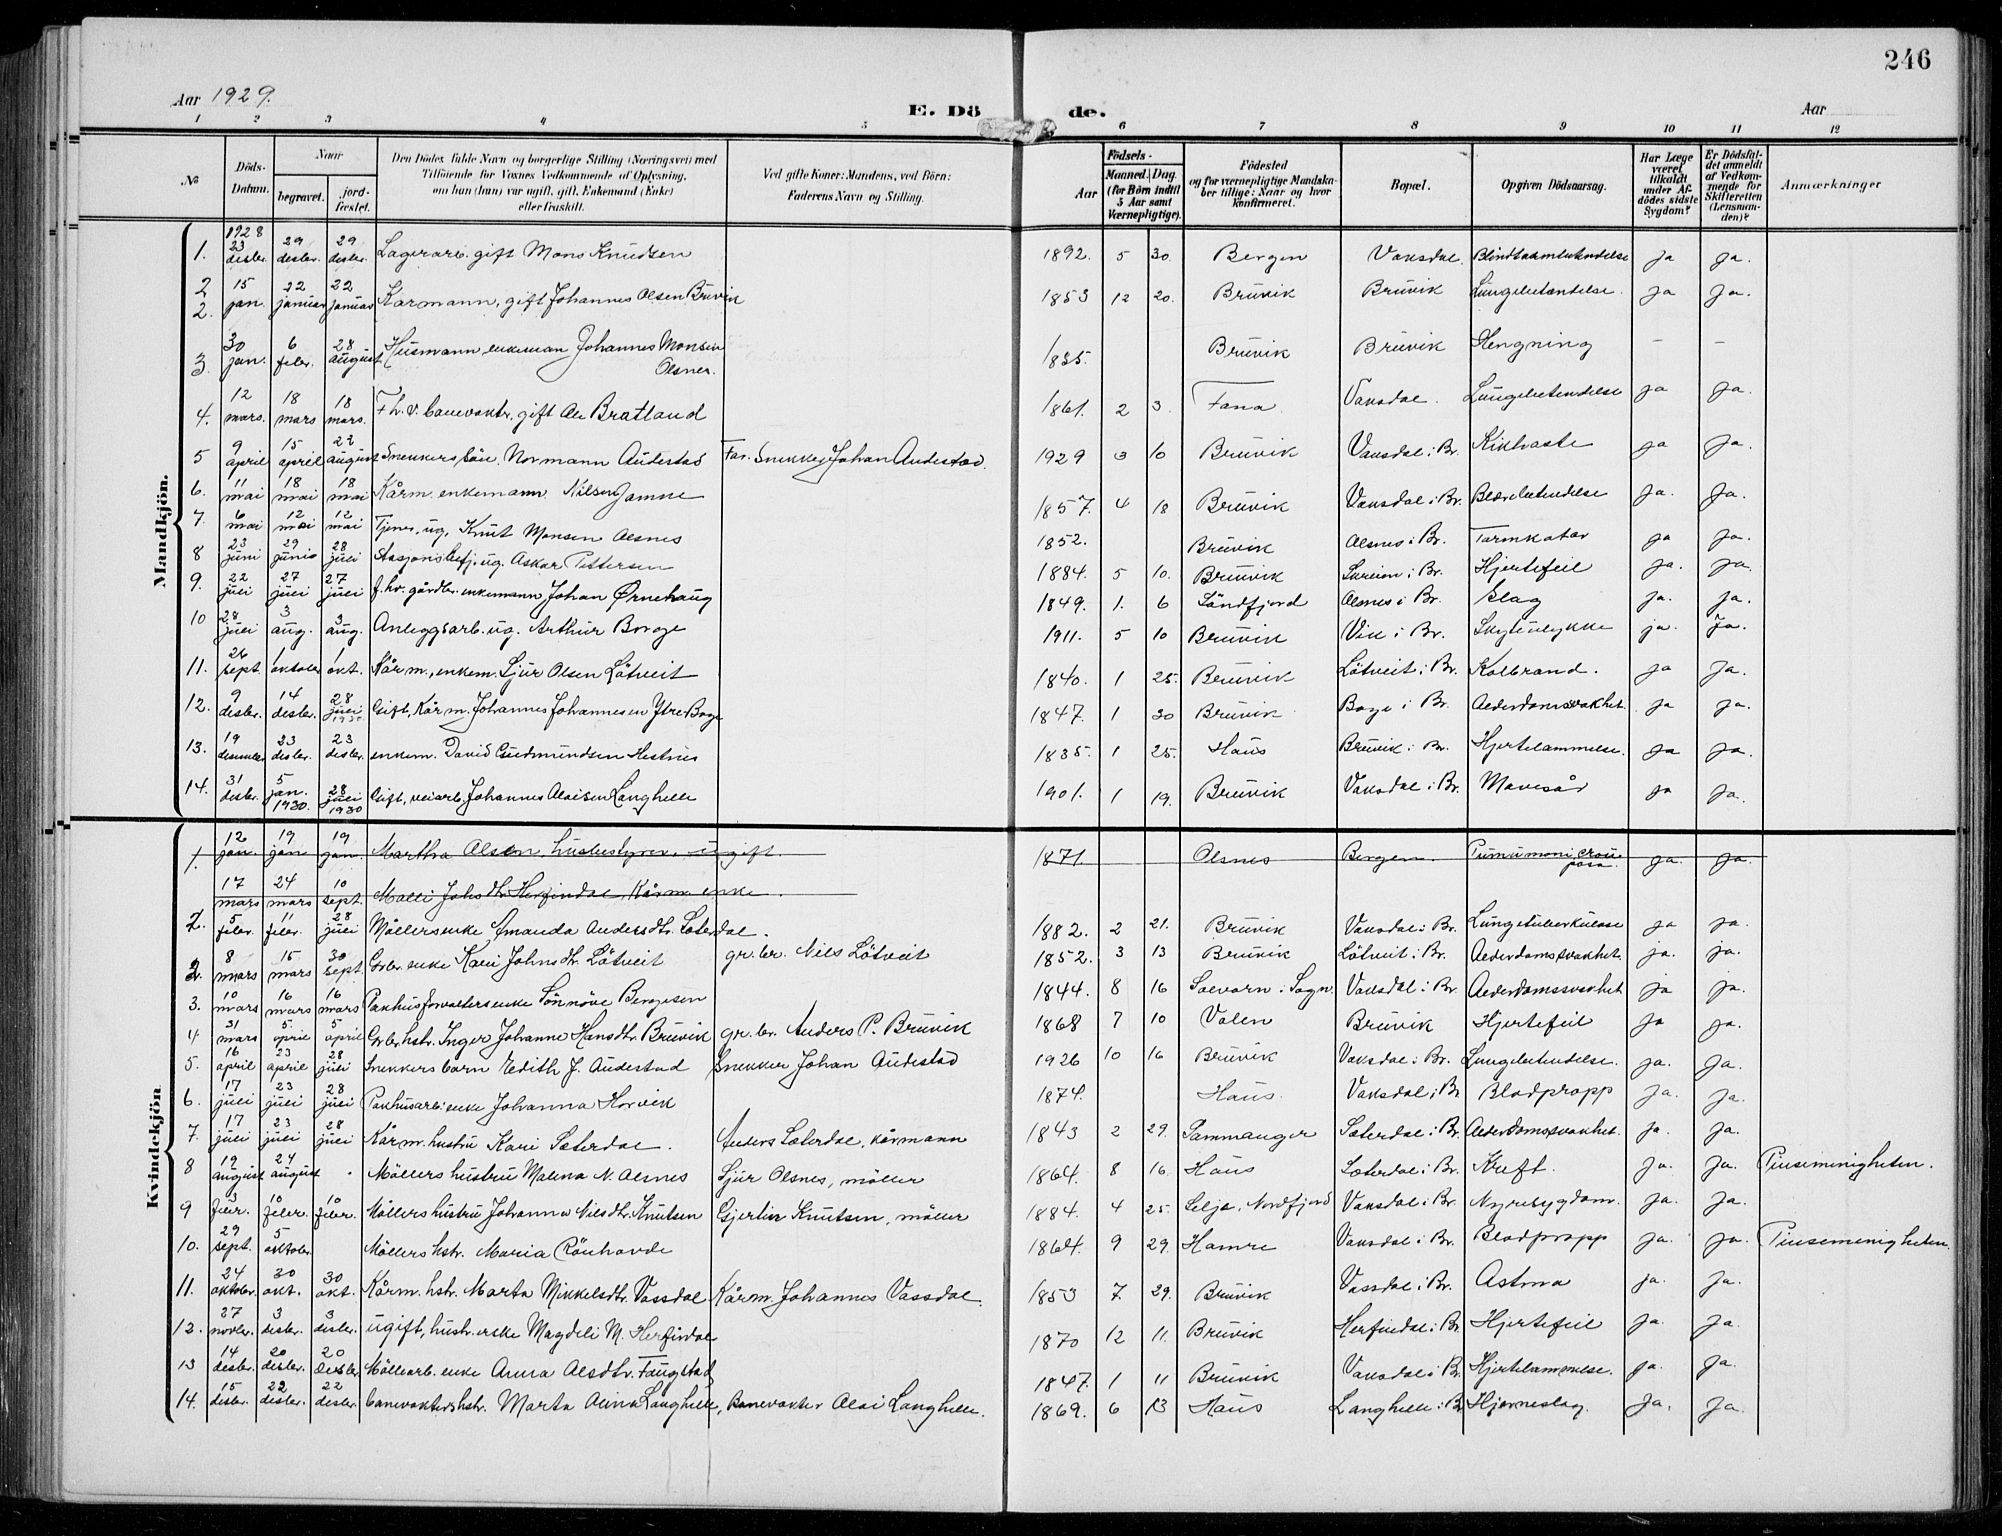 246
Aar 1929.
E. Dö de.
Aar
1 2 3 4 5 6 7 8 9 10 11 12
№ Döds-Datum. Naar begravet. jord-fæstet. Den Dödes fulde Navn og borgerlige Stilling (Næringsvei) med Tilföiende for Voxnes Vedkommende af Oplysning, om han (hun) var ugift, gift, Enkemand (Enke) eller fraskilt. Ved gifte Koner: Mandens, ved Börn: Faderens Navn og Stilling. Aar Födsels- Maaned. Dag. (for Börn indtil 5 Aar samt Værnepligtige). Födested og for værnepligtige Mandskaber tillige: Naar og hvor konfirmeret. Bopæl. Opgiven Dödsaarsag. Har Læge været tilkaldt under Afdödes sidste Sygdom? Er Dödsfaldet anmeldt af Vedkommende for Skifteretten (Lensmanden)? Anmærkninger
Mandkjön.
1. 1928 23 desbr. 29 desbr. 29 desbr. Lagerarb. gift Mons Knudsen 1892. 5 30. Bergen Vaksdal. Blindtarmbetendelse ja ja.
2 2. 15 jan. 22 januar 22 januar Kårmann, gift Johannes Olsen Bruvik 1853 12 20. Bruvik Bruvik Lungebetændelse. ja ja.
3. 30 jan. 6 febr. 28 august Husmann, enkeman Johannes Monsen Olsnes. 1835. Bruvik Bruvik Hengning – –
4. 12 mars. 18 mars 18 mars. Fh. v. banevoktr, gift Ole Bratland 1861. 2 3. Fana. Vaksdal. Lungebetendelse ja ja.
5 9 april 15 april 22 august Snekkers sön Normann Audestad Far. Snekker Johan Audestad. 1929 3 10 Bruvik Vaksdal i Br. Kikhoste ja ja.
6. 11 mai 18 mai 18 mai Kårm. enkemann Nils Jamne 1857. 4 18 Bruvik Vaksdal i Br. Blærebetendelse ja. ja.
7. 6 mai 12 mai 12 mai Tjener, ug. Knut Monsen Olsnes 1852. Bruvik Olsnes i Br. Tarmkatar ja ja.
8 23 juni 29 juni 28 juli Stasjonsbetj. ug. Oskar Pettersen 1884. 5 10. Bruvik Skreien i Br. Hjertefeil ja. ja.
9. 22 juli 27 juli 27 juli f. hv. gårdbr. enkemann Johan Ørnehaug 1849. 1. 6 Söndfjord Olsnes i Br. Slag ja. ja.
10 28 juli 3 aug. 3 aug. Anleggsarb. ug. Arthur Borge 1911. 5 10 Bruvik Vik i Br. Skyteulykke ja. ja.
11. 26 sept. 1 oktober 1 okt. Kårm., enkem. Sjur Olsen Lötveit 1840. 1 25. Bruvik Lötveit i Br. Kolbrand. ja ja.
12. 9 desbr. 14 desbr. 28 juli 1930 Gift, Kårm. Johannes Johannesen Ytre Boge 1847. 1 30 Bruvik Boge i Br. Alderdomssvakhet. ja ja.
13. 19 desember 23 desbr. 23 desbr. enkem. David Gudmundsen Hestnes 1835. 1 25. Haus Bruvik i Br. Hjertelammelse. ja ja.
14. 31 desbr. 5 jan. 1930. 28 juli 1930 Gift, veiarb. Johannes Olaisen Langhelle 1901. 1 19. Bruvik Vaksdal i Br. Mavesår ja ja.
Kvindekjön
1. 12 jan. 19 jan 19 jan. Martha Olsen, husbestyrer, ugift. 1871. Olsnes Bergen. Pneumoni crouposa. ja. ja.
17 mars 24 mars 10 sept. Malli Johsdtr. Herfindal, Kårm. enke.
2. 5 febr. 11 febr. 28 juli Möllers enke Amanda Andersdtr. Sæterdal. 1882. 2 21. Bruvik Vaksdal i Br. Lungetuberkulose ja ja.
2. 8 mars 15 mars 30 sept. Grbr. enke Kari Johnsdtr. Lötveit gr. br. Nils Lötveit 1852. 3 13 Bruvik Lötveit i Br. Alderdomssvakhet. ja. ja.
3. 10 mars 16 mars 16 mars Pakhusforvalters enke Sönnöve Bergesen 1844. 8 16 Solvorn i Sogn Vaksdal i Br. Alderdomssvakhet ja ja.
4 31 mars 5. april 5 april Grbr. hstr. Inger Johanne Hansdtr. Bruvik gr. br. Anders P. Bruvik 1868 7 10 Valen Bruvik Hjertefeil ja ja.
5. 16 april 23 april 28 juli Snekkers barn Edith J. Audestad Snekker Johan Audestad 1926 10 16 Bruvik Vaksdal i Br. Lungebetendelse. ja. ja.
6. 17 juli 23 juli 28 juli Pakhusarb. enke Johanna Horvik 1874. Haus. Vaksdal i Br Blodpropp ja. ja.
7. 17 juli 23 juli 28 juli Kårm. hustru Kari Sæterdal. Anders Sæterdal, kårmann 1843 2 29. Sammanger Sæterdal i Br. Alderdomssvakhet. ja. ja.
8 19 august 24 august . Möllers hustru Malena N. Olsnes Sjur Olsnes, möller 1864. 8 16 Haus Sæterdal i Br. Kreft. ja. ja. Pinsemenigheten.
9 3 febr. 10 febr. 10 febr. Möllers hustru Johanna Nilsdtr. Knutsen Gjertin Knutsen, möller 1884. 4 25. Selje, Nordfjord Vaksdal i Br. Nyresygdom. ja. ja.
10. 29 sept. 5 oktober. Möllers hstr. Maria Rönhovde 1864. 9 29. Hamre Vaksdal i Br. Blodpropp ja. ja. Pinsemenigheten.
11. 24 oktober. 30 okt. 30 okt. Kårm. hstr. Marta Mikkelsdtr. Vassdal Kårm. Johannes Vassdal. 1853 7. 29. Bruvik Vassdal i Br. Astma ja. ja.
12. 27 novbr. 3 desbr. 3 desbr. ugift, hush.erske Magdeli M. Herfindal 1870 12 11. Bruvik Herfindal i Br. Hjertefeil ja. ja.
13 14 desbr. 20 desbr. 20 desbr. Möllearb. enke Anna Olsdtr. Faugstad 1847. 1 11 Bruvik Vaksdal i Br. Hjertelammelse. ja. ja.
14. 15 desbr. 22 desbr. 22 desbr. banevokters hstr. Marta Oline Langhelle, Banevokter Olai Langhelle. 1869. 6 13 Haus Langhelle i Br Hjerneslag. ja. ja.